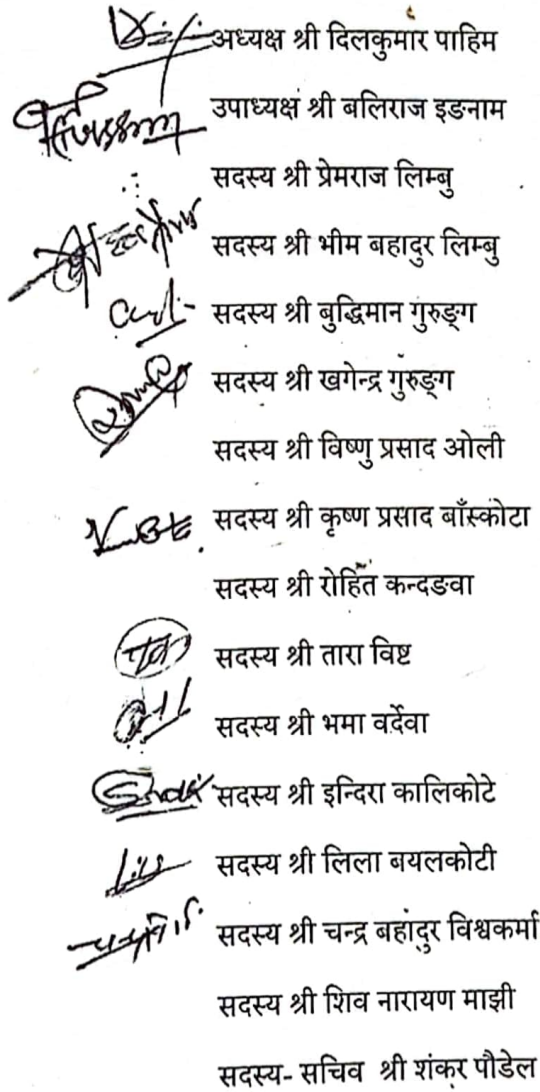 अध्यक्ष श्री दिलकुमार पाहिम
उपाध्यक्ष श्री बलिराज इङनाम
सदस्य श्री प्रेमराज लिम्बु
सदस्य श्री भीम बहादुर लिम्बु
सदस्य श्री बुद्धिमान गुरुङ्ग
सदस्य श्री खगेन्द्र गुरुङ्ग
सदस्य श्री विष्णु प्रसाद ओली
सदस्य श्री कृष्ण प्रसाद बाँस्कोटा
सदस्य श्री रोहित कन्दङवा
सदस्य श्री तारा विष्ट
सदस्य श्री भमा वर्देवा
सदस्य श्री इन्दिरा कालिकोटे
सदस्य श्री लिला बयलकोटी
सदस्य श्री चन्द्र बहादुर विश्वकर्मा
सदस्य श्री शिव नारायण माझी
सदस्य- सचिव श्री शंकर पौडेल